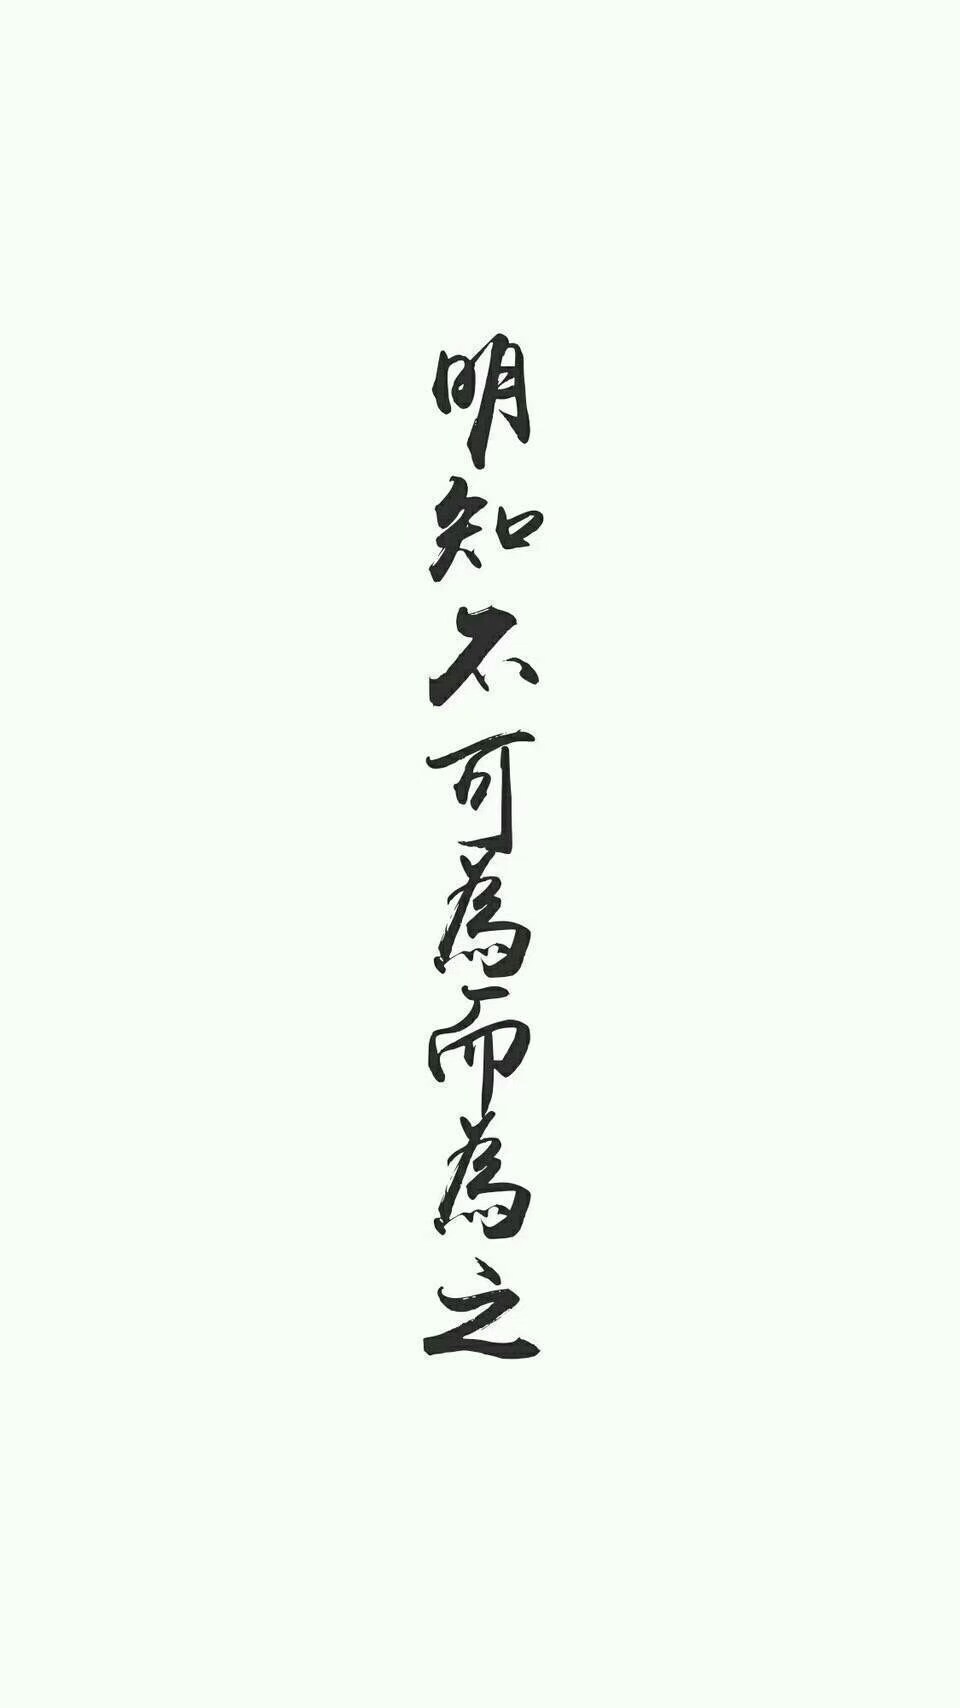 明知不可為而為之